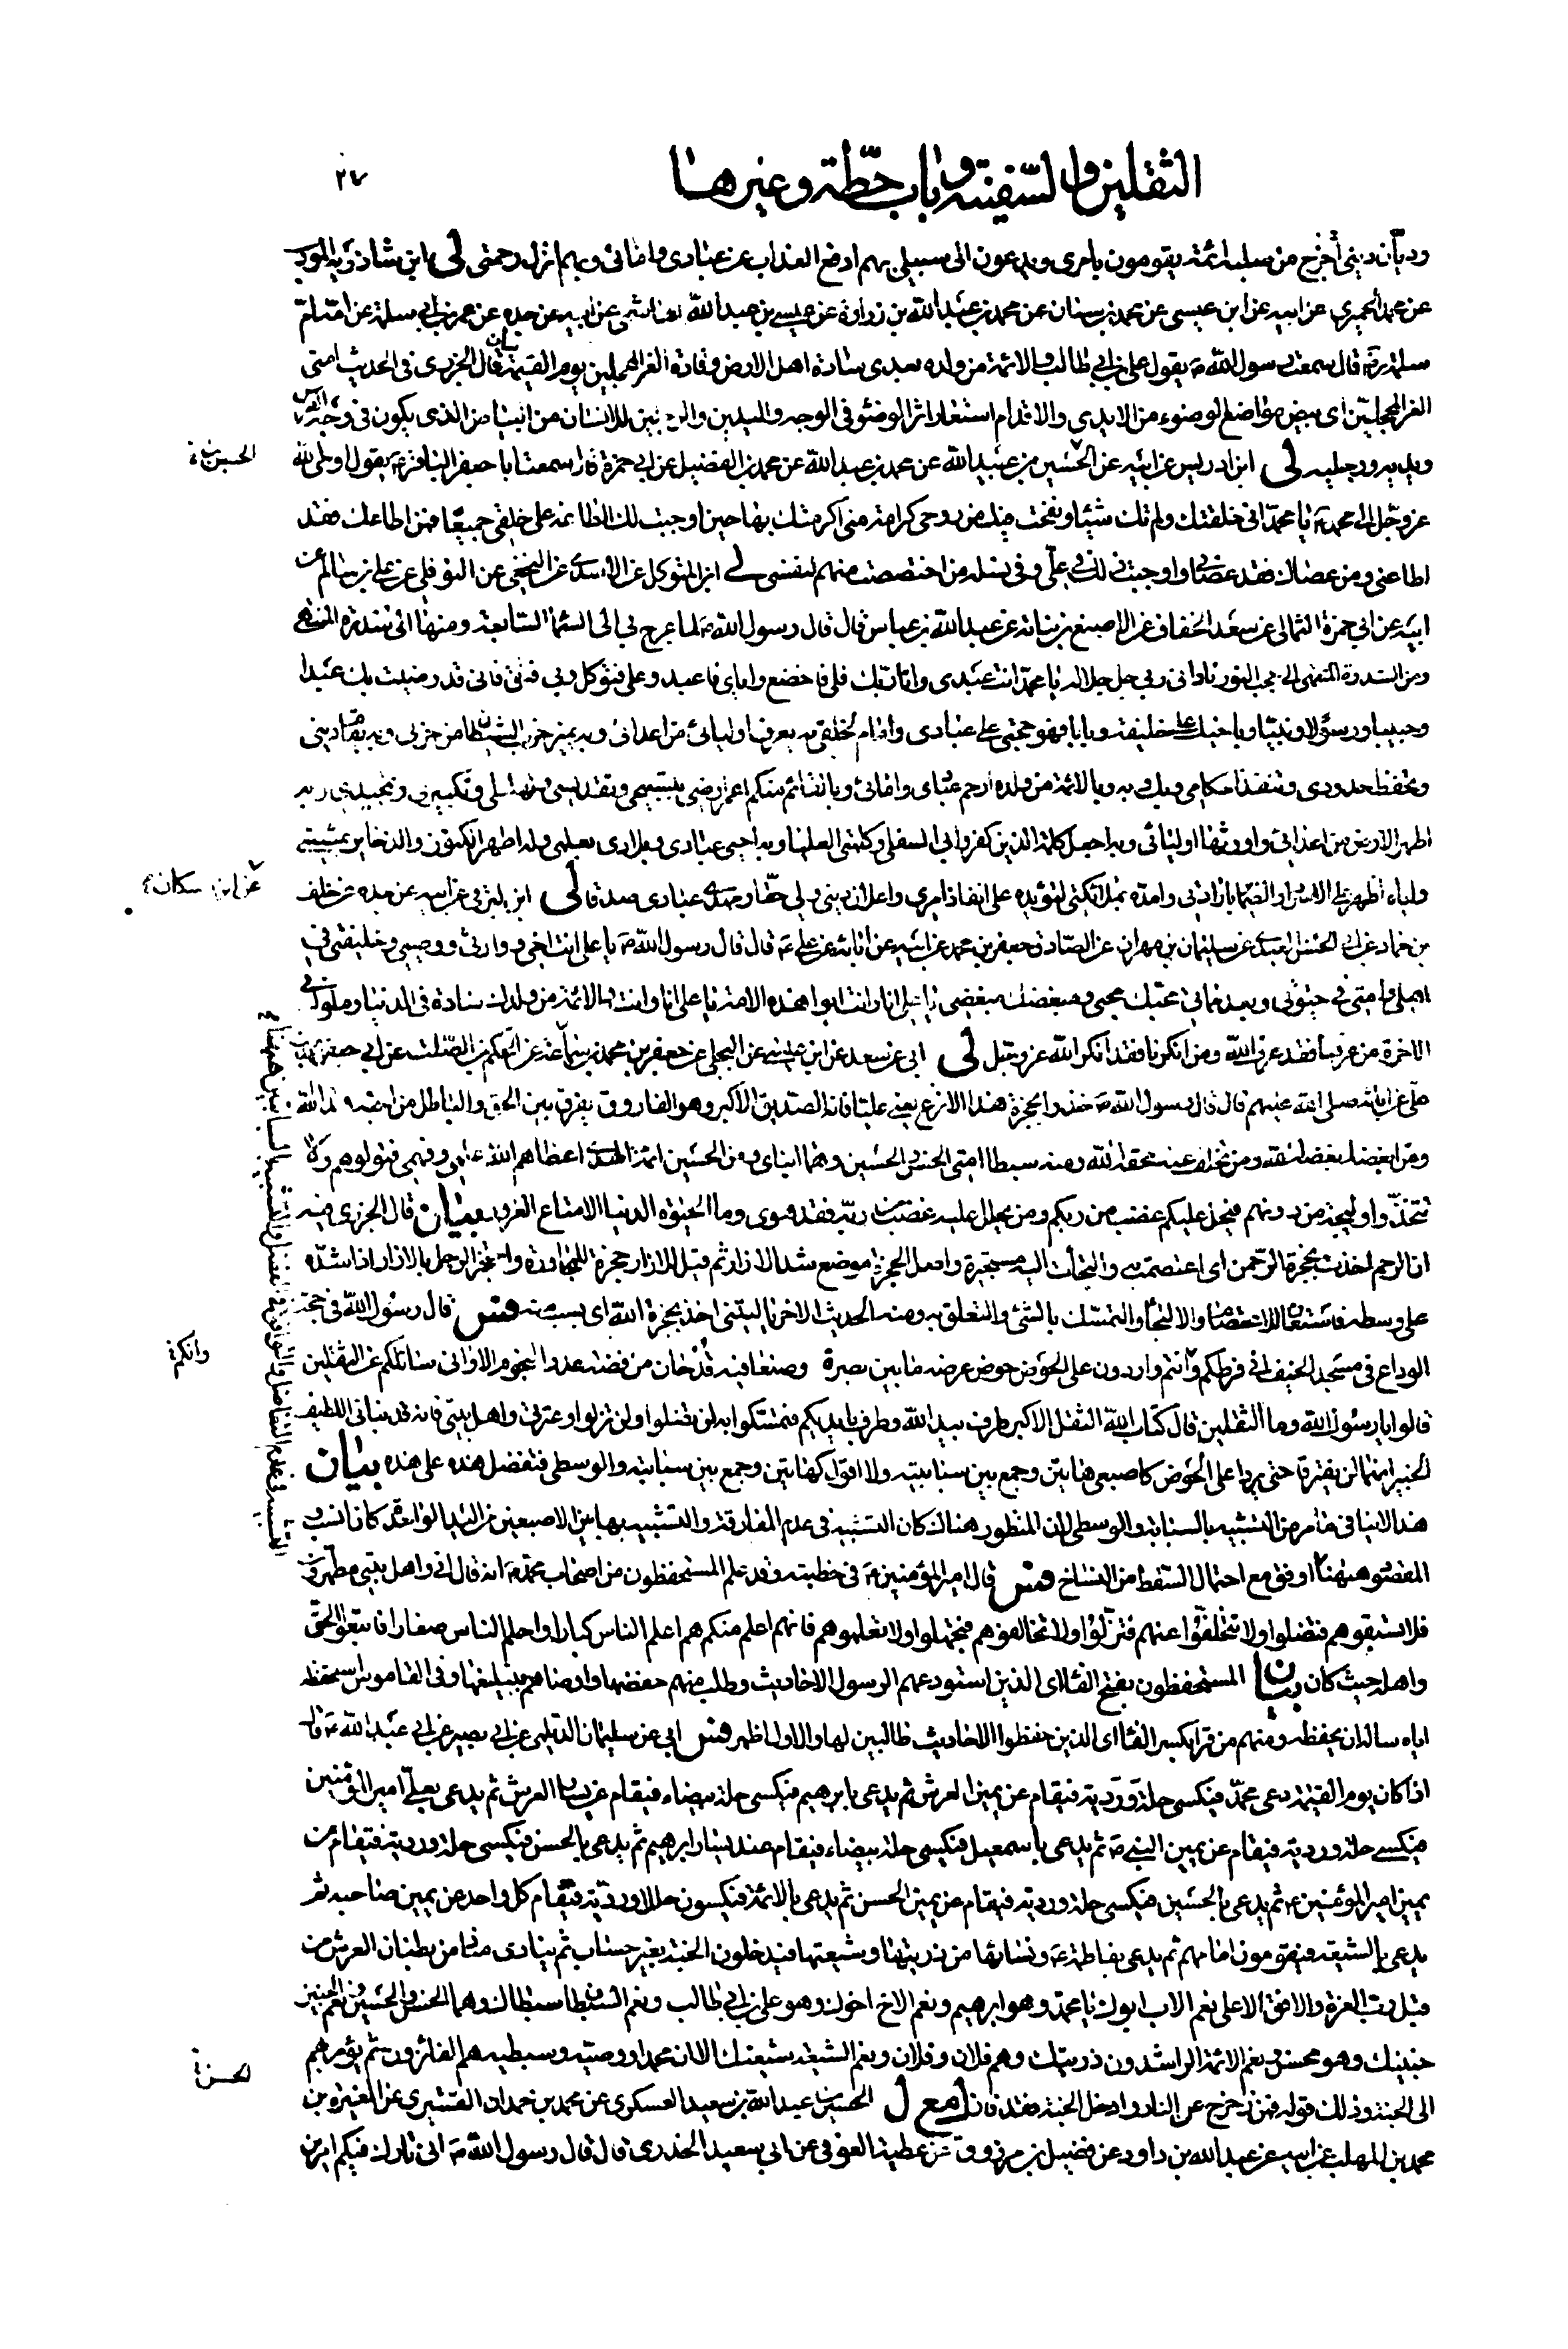 الثقلين والسفينة وباب حطة وغيرها
٢٧
ودیان دینی اخرج من سلبه ائمة يقومون بامری ويدعون الى سبیلی بهم ادفع العذاب عن عبادی وامائی وبهم انزل رحمتی لی ابن شاذويه المودب
عن محمد الحمیری عن ابیه عن ابن عیسی عن محمد بن سنان عن محمد بن عبد الله بن زرارة عن عیسی بن عبد الله الهاشمی عن ابیه عن جده عن عمر بن ابی سلمة عن امه ام
سلمة رض قال سمعت رسول الله ص يقول علی بن ابی طالب والائمة من ولده بعدی سادة اهل الارض وقادة الغر المحجلین یوم القیمة بیان قال الجزری فی الحدیث امتی
الغر المحجلین ای بیض مواضع الوضوء من الایدی والاقدام استعار اثر الوضوء فی الوجه والیدین والرجلین للانسان من البیاض الذی یکون فی وجه الفرس
ویدیه ورجلیه لی ابن ادریس عن ابیه عن الحسین بن عبید الله عن محمد بن عبد الله عن محمد بن الفضیل عن ابی حمزة قال سمعت ابا جعفر الباقر ع یقول اوحی الله
الحسین بن ة
عز وجل الی محمد ص یا محمد انی خلقتك ولم تك شیئا ونفخت فیك من روحی کرامة منی اکرمتك بها حین اوجبت لك الطاعة علی خلقی جمیعا فمن اطاعك فقد
اطاعنی ومن عصاك فقد عصانی واوجبت ذلك فی علی وفی نسله من اختصصت منهم لنفسی لی ابن المتوکل عن الاسدی عن النخعی عن النوفلی عن علی بن سالم عن
ابیه عن ابی حمزة الثمالی عن سعد الخفاف عن الاصبغ بن نباته عن عبد الله بن عباس قال قال رسول الله ص لما عرج بی الی السماء السابعة ومنها الی سدرة المنتهی
ومن السدرة المنتهی الی حجب النور نادانی ربی جل جلاله یا محمد انت عبدی وانا ربك فلی فاخضع وایای فاعبد وعلی فتوکل وبی فثق فانی قد رضیت بك عبدا
وحبیبا ورسولا ونبیا وباخیك علی خلیفة وبابا فهو حجتی علی عبادی وامام لخلقی به یعرف اولیائی من اعدائی وبه یمیز حزب الشیطان من حزبی وبه یقام دینی
وتحفظ حدودی وتنفذ احکامی وبك وبه وبالائمة من ولده ارحم عبادی وامائی وبالقائم منکم اعمر ارضی بتسبیحی وتقدیسی وتهلیلی وتکبیری وتمجیدی وبه
اطهر الارض من اعدائی واورثها اولیائی وبه اجعل کلمة الذین کفروا بی السفلی وکلمتی العلیا وبه احیی عبادی وبلادی بعلمی وله اظهر الکنوز والذخایر بمشیتی
وایاه اظهر علی الاسرار والضمایر بارادتی وامده بملائکتی لتؤیده علی انفاذ امری واعلان دینی ذلك ولی حقا ومهدی عبادی صدقا لی ابن البرقی عن ابیه عن جده عن خلف
عن ابن سکان
بن حماد عن ابی الحسن العبدی عن سلیمان بن مهران عن الصادق جعفر بن محمد عن ابیه عن ابائه عن علی ع قال قال رسول الله ص یا علی انت اخی ووارثی ووصیی وخلیفتی فی
اهلی وامتی فی حیوتی وبعد مماتی محبك محبی ومبغضك مبغضی یا علی انا وانت ابوا هذه الامة یا علی انا وانت والائمة من ولدك سادة فی الدنیا وملوك فی
الاخرة من عرفنا فقد عرف الله ومن انکرنا فقد انکر الله عز وجل لی ابی عن سعد عن ابن عیسی عن البجلی عن جعفر بن محمد بن سماعة عن الحکم بن الصلت عن ابی جعفر محمد بن
علی عن ابائه صلی الله علیهم قال قال رسول الله ص خذوا بحجزة هذا الانزع یعنی علیا فانه الصدیق الاکبر وهو الفاروق یفرق بین الحق والباطل من احبه هداه الله
ومن ابغضه ابغضه الله ومن تخلف عنه محقه الله ومنه سبطا امتی الحسن والحسین وهما ابنای ومن الحسین ائمة الهدی اعطاهم الله علمی وفهمی فتولوهم ولا
تتخذوا ولیجة من دونهم فیحل علیکم غضب من ربکم ومن یحلل علیه غضب من ربه فقد هوی وما الحیوة الدنیا الا متاع الغرور بیان قال الجزری فیه
ان الرحم اخذت بحجزة الرحمن ای اعتصمت به والتجأت الیه مستجیرة واصل الحجزة موضع شد الازار ثم قیل للازار حجزة للمجاورة واحتجز الرجل بالازار اذا شده
علی وسطه فاستعاره للاعتصام والالتجاء والتمسك بالشیء والتعلق به ومنه الحدیث الاخر یا لیتنی اخذ بحجزة الله ای بسبب منه فس قال رسول الله فی حجة
الوداع فی مسجد الخیف انی فرطکم وانتم واردون علی الحوض حوض عرضه ما بین بصرة وصنعا فیه قدحان من فضة عدد النجوم الا وانی سائلکم عن الثقلین
وانکم ة
قالوا یا رسول الله وما الثقلین قال کتاب الله الثقل الاکبر طرف بید الله وطرف بایدیکم فتمسکوا به لن تضلوا ولن تزلوا وعترتی واهل بیتی فانه قد نبأنی اللطیف
الخبیر انهما لن یفترقا حتی یردا علی الحوض کاصبعی هاتین وجمع بین سبابتیه ولا اقول کهاتین وجمع بین سبابته والوسطی فتفضل هذه علی هذه بیان
هذا لا ینافی ما مر من التشبیه بالسبابة والوسطی لان المنظور هناك کان التشبیه فی عدم المفارقة والتشبیه بهاتین الاصبعین من الید الواحدة کان انسب و
المقصود ههنا اوفق مع احتمال السقط من النساخ فس قال امیر المؤمنین ع فی خطبته وقد علم المستحفظون من اصحاب محمد ص انه قال انی واهل بیتی مطهرون
فلا تسبقوهم فتضلوا ولا تتخلفوا عنهم فتزلوا ولا تخالفوهم فتجهلوا ولا تعلموهم فانهم اعلم منکم هم اعلم الناس کبارا واحلم الناس صغارا فاتبعوا الحق
واهله حیث کان بیان المستحفظون بفتح الفاء ای الذین استودعهم الرسول الاحادیث وطلب منهم حفظها واوصاهم بتبلیغها وفی القاموس استحفظه
ایاه ساله ان یحفظه ومنهم من قرا بکسر الفاء ای الذین حفظوا الاحادیث طالبین لها والاول اظهر فس ابی عن سلیمان الدیلمی عن ابی بصیر عن ابی عبد الله ع قال
اذا کان یوم القیمة دعی محمد فیکسی حلة وردیة فیقام عن یمین العرش ثم یدعی بابرهیم فیکسی حلة بیضاء فیقام عن یسار العرش ثم یدعی بعلی امیر المؤمنین
فیکسی حلة وردیة فیقام عن یمین النبی ص ثم یدعی باسمعیل فیکسی حلة بیضاء فیقام عند یسار ابرهیم ثم یدعی بالحسن فیکسی حلة وردیة فیقام عن
یمین امیر المؤمنین ع ثم یدعی بالحسین فیکسی حلة وردیة فیقام عن یمین الحسن ثم یدعی بالائمة فیکسون حللا وردیة فیقام کل واحد عن یمین صاحبه ثم
یدعی بالشیعة فیقومون امامهم ثم یدعی بفاطمة ع ونسائها من ذریتها وشیعتها فیدخلون الجنة بغیر حساب ثم ینادی مناد من بطنان العرش من
قبل رب العزة والافق الاعلی نعم الاب ابوك یا محمد وهو ابرهیم ونعم الاخ اخوك وهو علی بن ابی طالب ونعم السبطان سبطاك وهما الحسن والحسین ونعم الجنین
جنینك وهو محسن ونعم الائمة الراشدون ذریتك وهم فلان وفلان ونعم الشیعة شیعتك الا ان محمدا ووصیه وسبطیه هم الفائزون ثم یؤمر بهم
الحسن ة
الی الجنة وذلك قوله فمن زحزح عن النار وادخل الجنة فقد فاز مع ل الحسین بن عبد الله بن سعید العسکری عن محمد بن حمدان القشیری عن المغیرة بن
محمد بن المهلب عن ابیه عن عبد الله بن داود عن فضیل بن مرزوق عن عطیة العوفی عن ابی سعید الخدری قال قال رسول الله ص انی تارك فیکم امرین